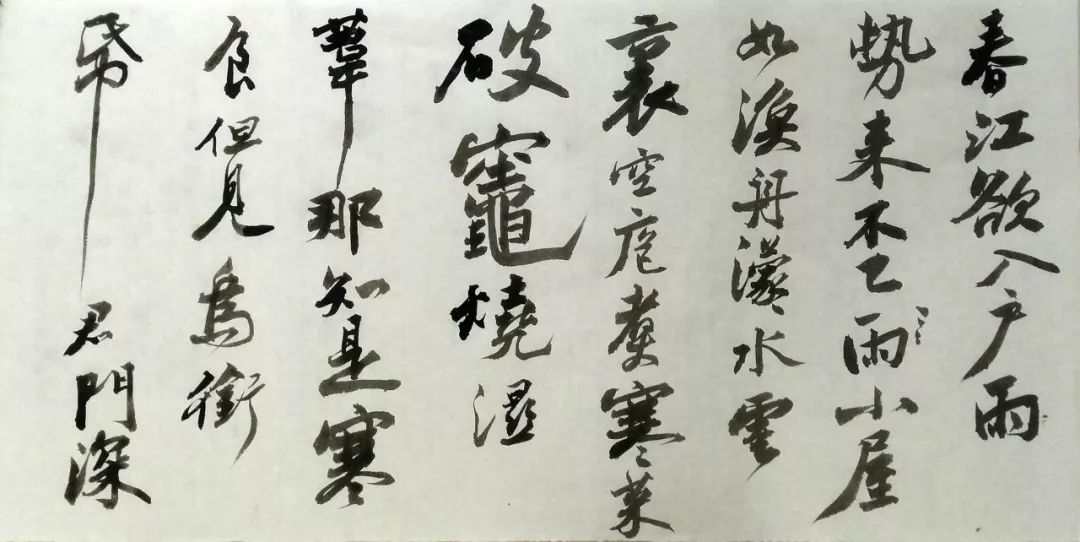 春江欲入户雨
勢来不已雨小屋
如漁舟濛〻水雲
裏空庖煮寒菜
破竈燒濕
葦那知是寒
食但見烏銜
帋君門深